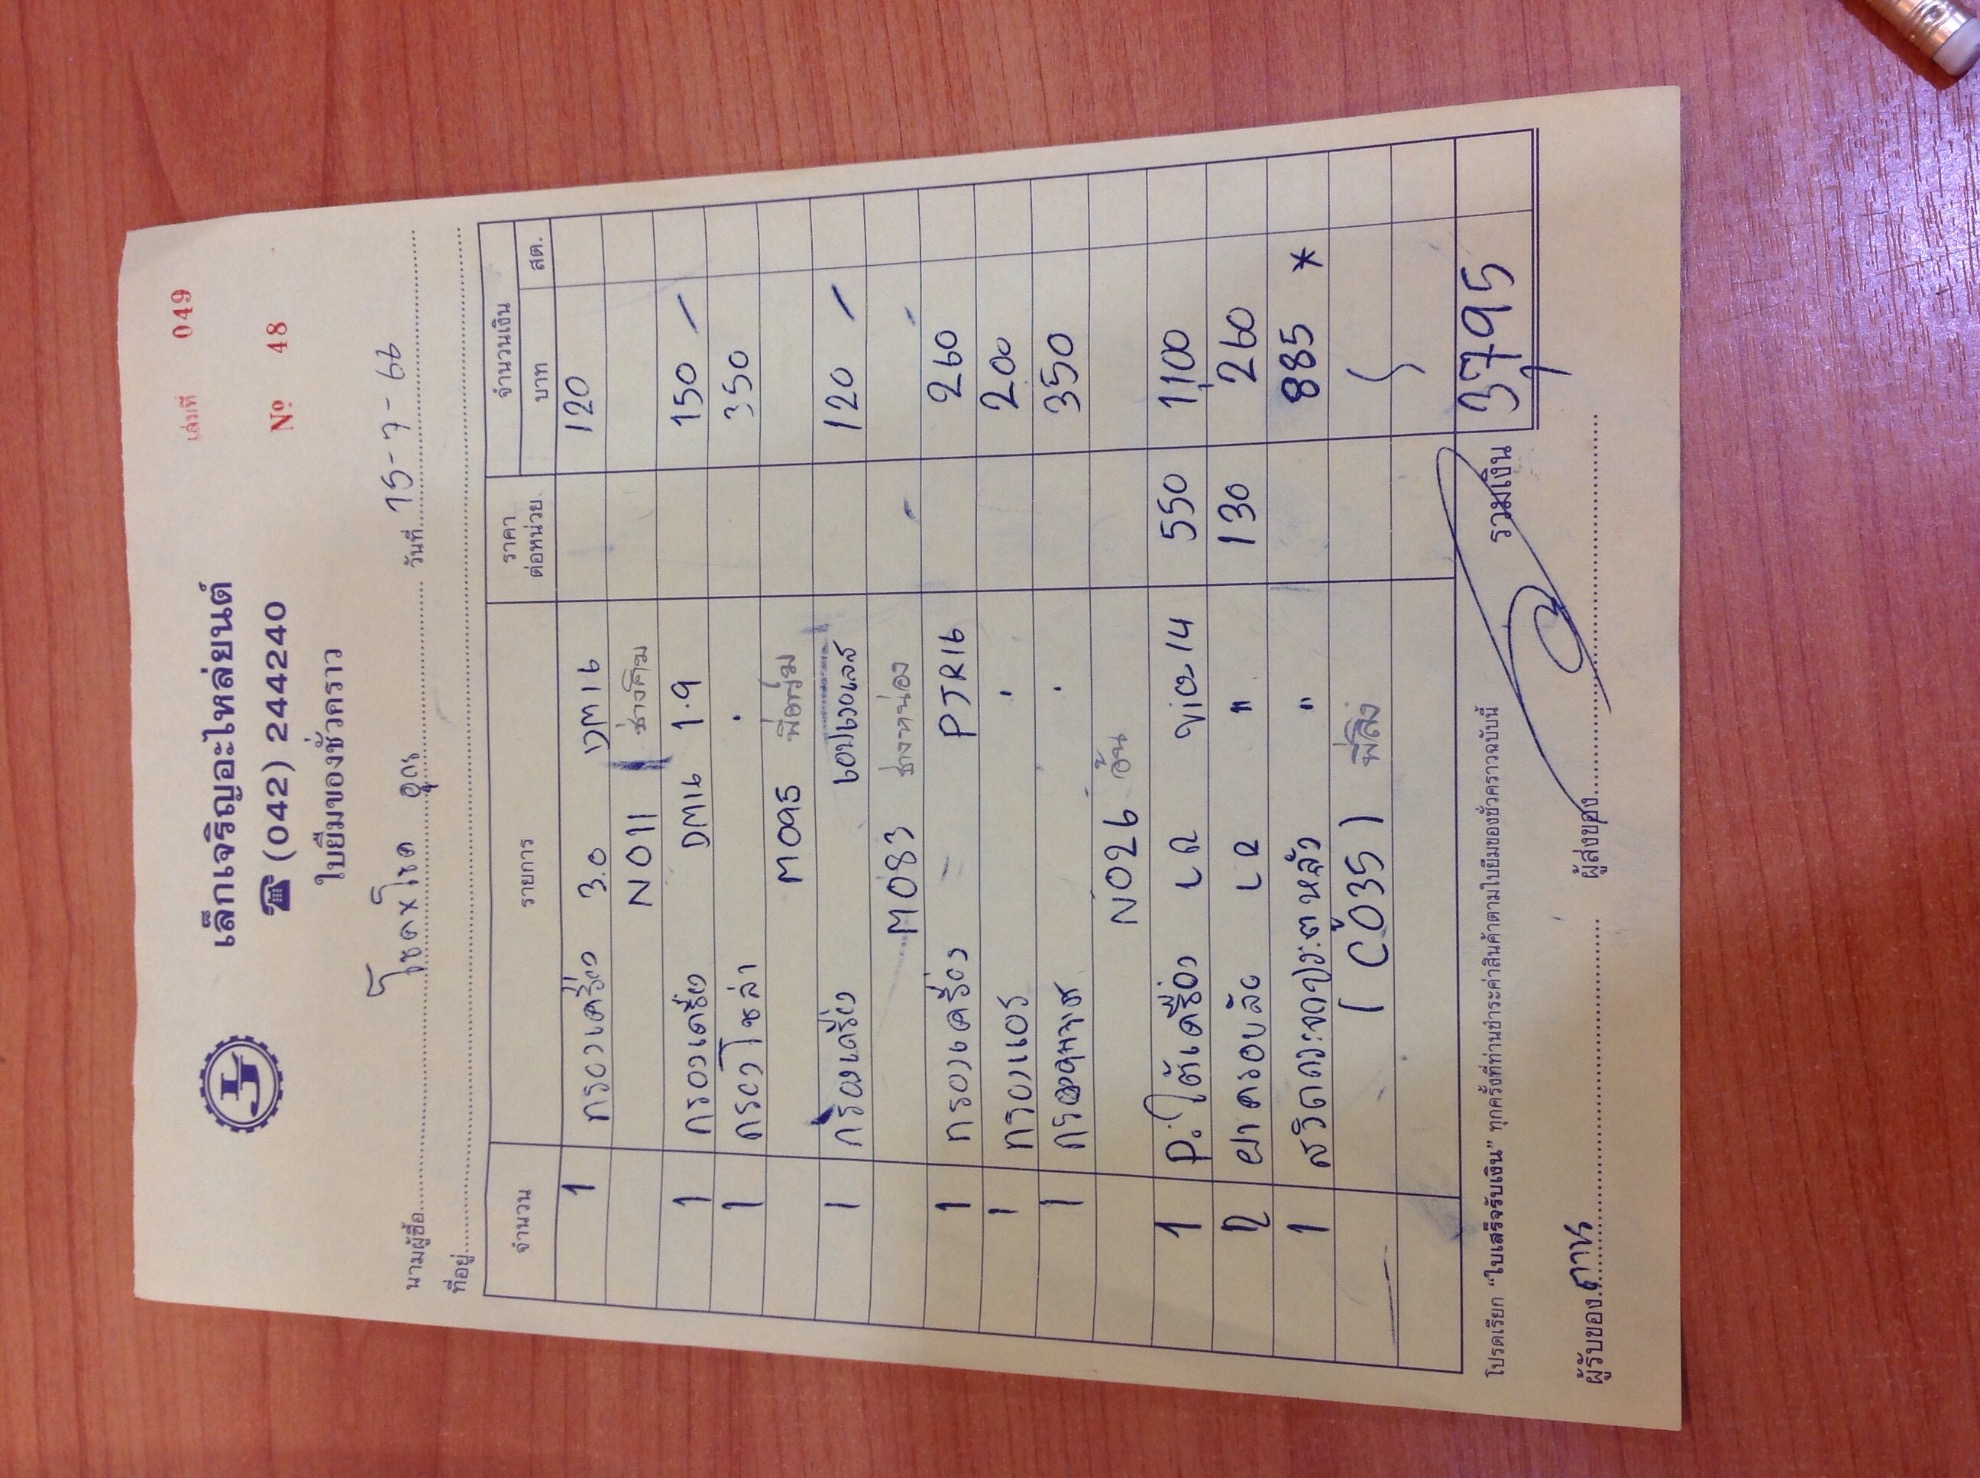 เล่มที่ 049
เล็กเจริญอะไหล่ยนต์
☎ (042) 244240
Nº 48
ใบยืมของชั่วคราว
นามผู้ซื้อ โชคxโชค อุดร วันที่ 15-7-66
ที่อยู่
จำนวน รายการ ราคาต่อหน่วย จำนวนเงิน
บาท สต.
1 กรองเครื่อง 3.0 DM16 120
N011 ช่างคิม
1 กรองเครื่อง DM16 1.9 150 /
1 กรองโซล่า " 350
M095 พี่อุ้ม
1 กรองเครื่อง 120 /
M083 ช่างหน่อง
1 กรองเครื่อง PJR16 260
1 กรองแอร์ " 200
1 " 350
N026 อั้น
1 P.ใต้เครื่อง LR Vio14 550 1,100
2 ฝาครอบล้อ LR " 130 260
1 " 885 *
( C035 ) พี่สิง
รวมเงิน 3795
โปรดเรียก "ใบเสร็จรับเงิน" ทุกครั้งที่ท่านชำระค่าสินค้าตามใบยืมของชั่วคราวฉบับนี้
ผู้รับของ ผู้ส่งของ